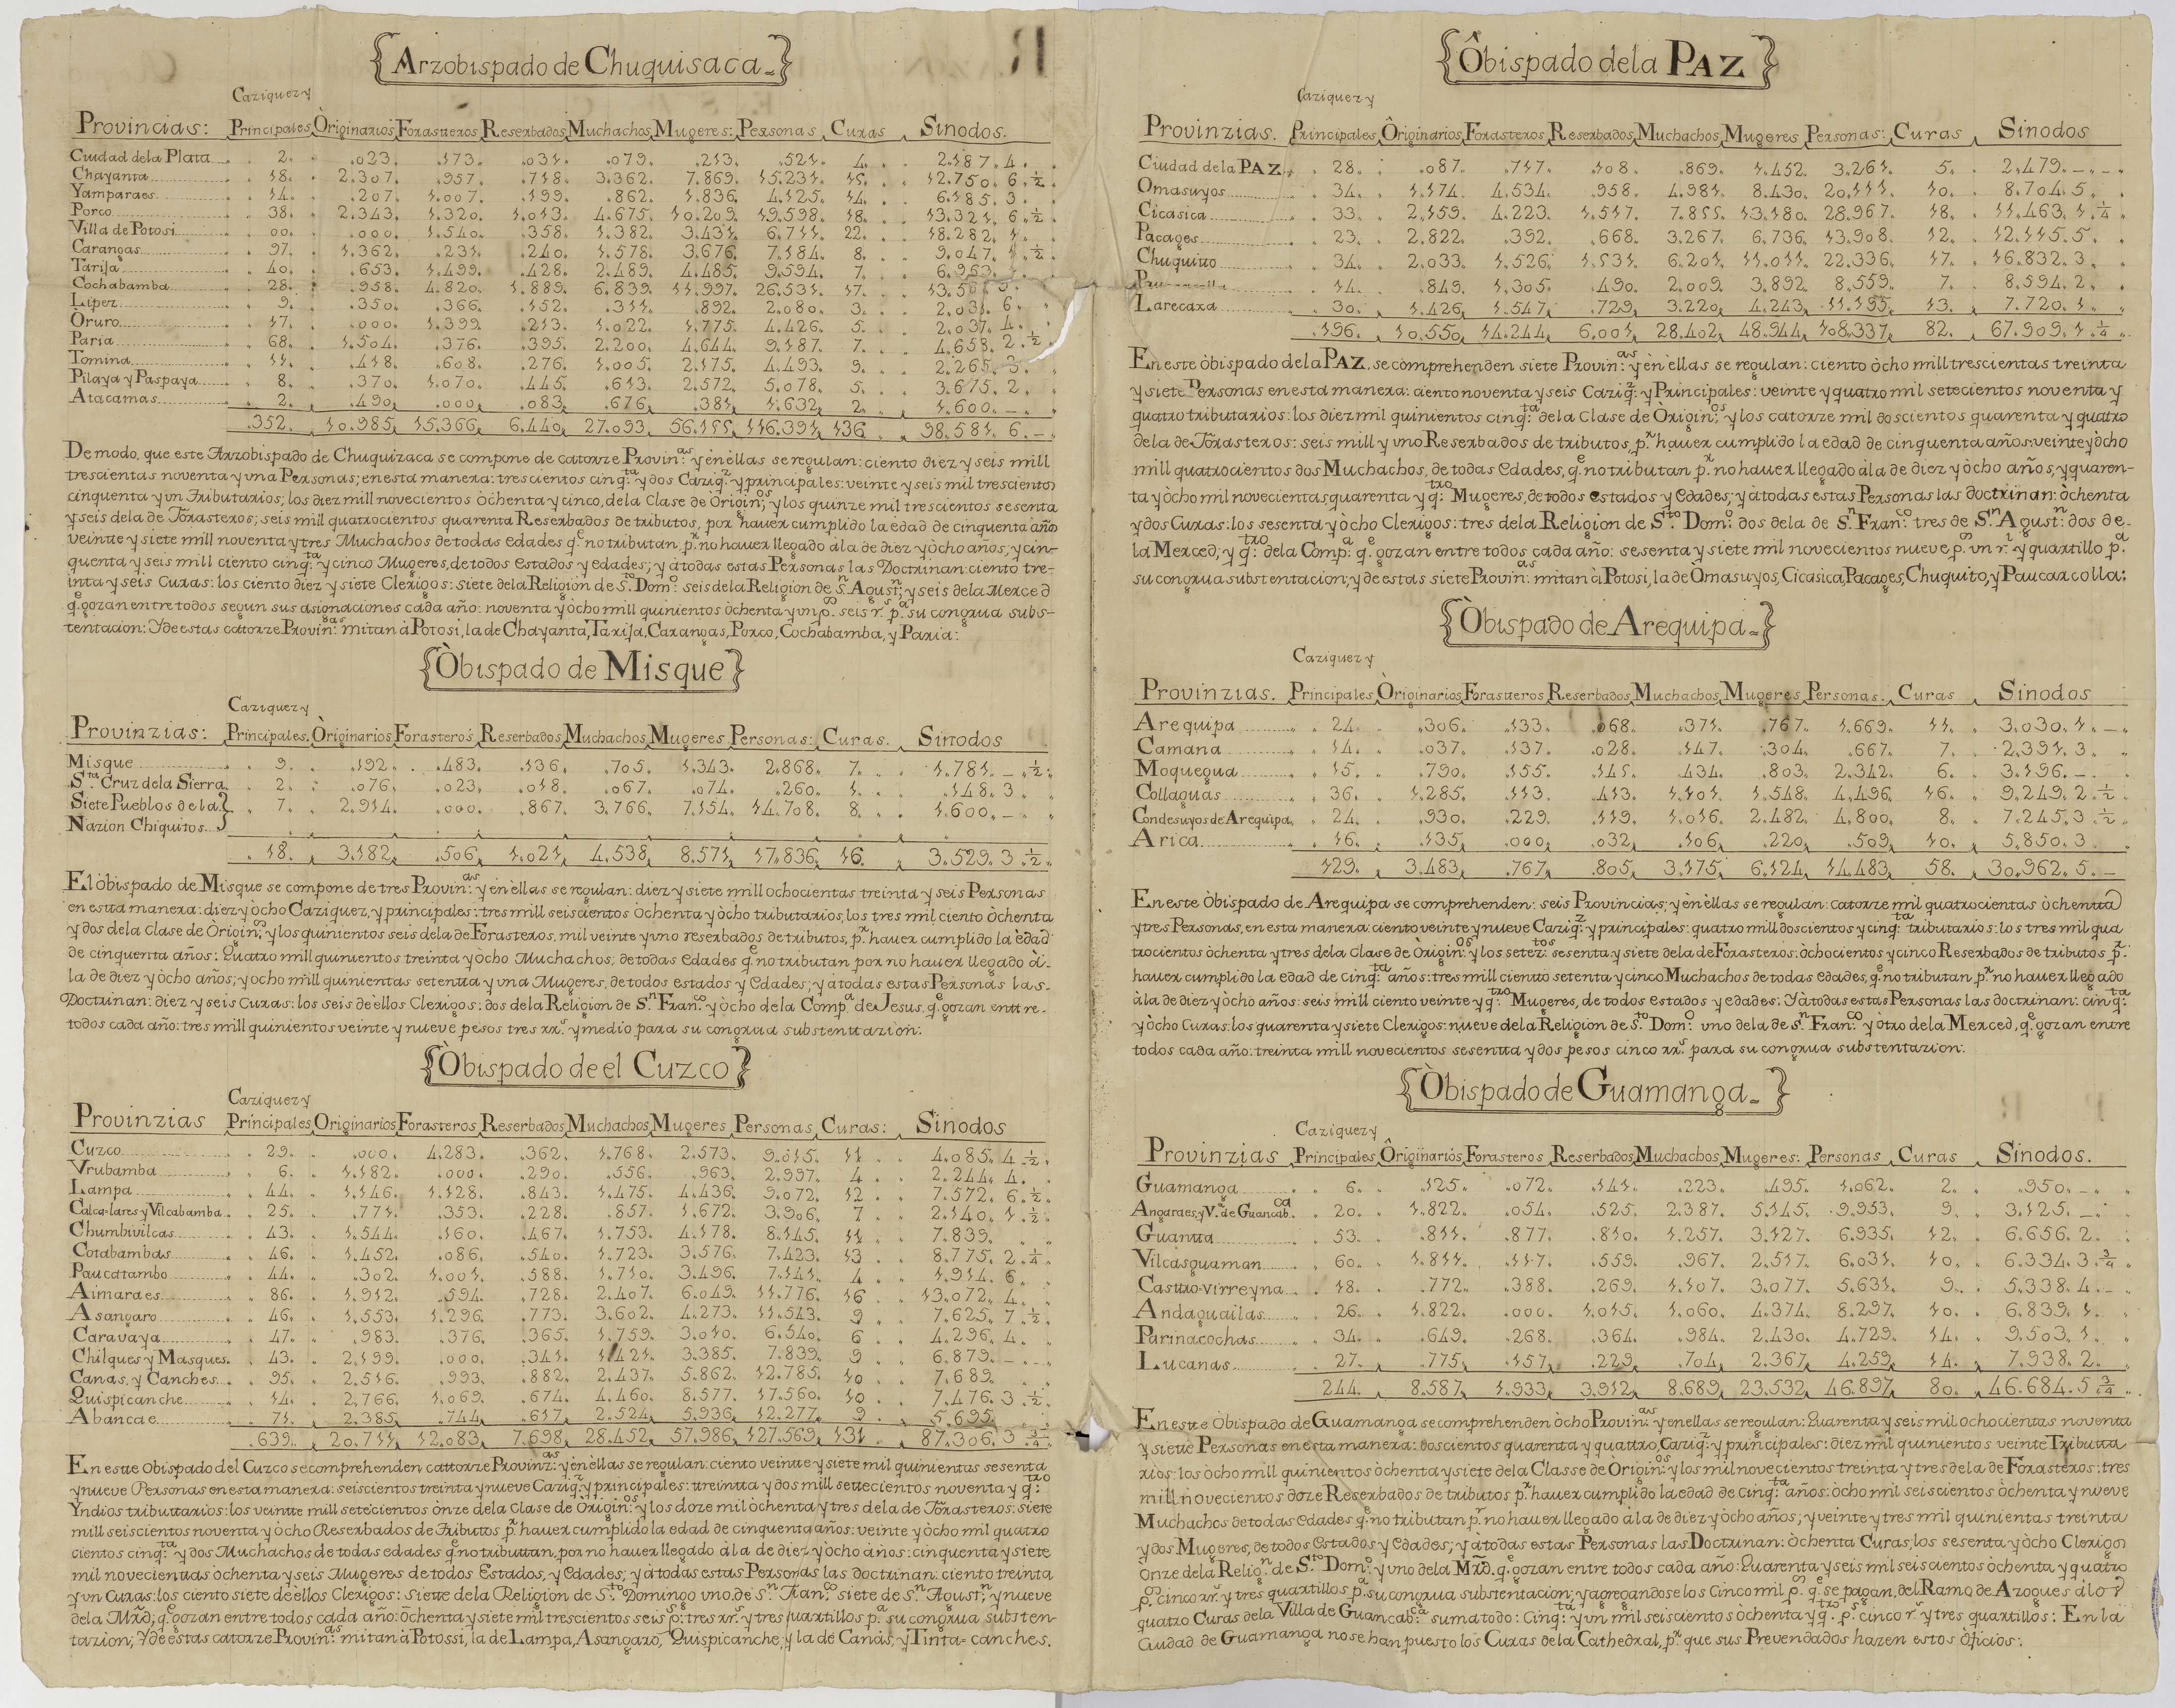 Arzobispado de Chuquisaca
Caziquez y
Provincias: Principales Òriginarios Forasteros Reserbados Muchachos Mugeres: Personas Curas Sinodos.
Ciudad dela Plata 2. .023. .173. .031. .079. .213. .521. 4. 2.187.4.
Chayanta 18. 2.307. .957. .718. 3.362. 7.869. 15.231. 15. 12.750.6.½
Yamparaes 14. .207. 1.007. .199. .862. 1.836. 4.125. 14. 6.185.3.
Porco 38. 2.343. 1.320. 1.013. 4.675. 10.209. 19.598. 18. 13.321.6.½
Villa de Potosi 00. .000. 1.540. .358. 1.382. 3.431. 6.711. 22. 18.282.1.
Carangas 97. 1.362. .231. .240. 1.578. 3.676. 7.184. 8. 9.047.1.½
Tarija 40. .653. 1.499. .428. 2.489. 4.485. 9.594. 7.
Cochabamba 28. .958. 4.820. 1.889. 6.839. 11.997. 26.531. 17.
Lipez 9. .350. .366. .152. .311. .892. 2.080. 3. 2.031.6.
Òruro 17. .000. 1.399. .213. 1.022. 1.775. 4.426. 5. 2.037.4.
Paria 68. 1.504. .376. .395. 2.200. 4.644. 9.187. 7. 4.658.2.½
Tomina 11. .418. .608. .276. 1.005. 2.175. 4.493. 9. 2.265.3.
Pilaya y Paspaya 8. .370. 1.070. .445. .613. 2.572. 5.078. 5. 3.675.2.
Atacamas 2. .490. .000. .083. .676. .381. 1.632. 2. 1.600.–
.352. 10.985. 15.366. 6.440. 27.093. 56.155. 116.391. 136. 98.581.6.–
De modo, que este Arzobispado de Chuquizaca se compone de catorze Provin:as y èn èllas se regulan: ciento diez y seis mill
trescientas noventa y vna Personas; en esta manera: trescientos cinq:ta y dos Caziq:z y principales: veinte y seis mil trescientos
cinquenta y vn Tributarios; los diez mill novecientos òchenta y cinco, dela Clase de Òrigin:os y los quinze mil trescientos sesenta
y seis dela de Forasteros; seis mill quatrocientos quarenta Reserbados de tributos, por hauer cumplido la edad de cinquenta años
veinte y siete mill noventa y tres Muchachos de todas edades q.e no tributan p.r no hauer llegado àla de diez y òcho años, y cin-
quenta y seis mill ciento cinq:ta y cinco Mugeres, de todos estados y edades; y àtodas estas Personas las Doctrinan: ciento tre-
inta y seis Curas: los ciento diez y siete Clerigos: siete dela Religion de S.to Dom:o seis dela Religion de S.n Agust:n y seis dela Merced
q.e gozan entre todos segun sus asignaciones cada año: noventa y òcho mill quinientos òchenta y vn p.s seis r.s p.a su congrua subs-
tentacion: Y de estas catorze Provin:as mitan à Potosi, la de Chayanta, Tarija, Carangas, Porco, Cochabamba, y Paria:
Òbispado de Misque
Caziquez y
Provinzias: Principales. Òriginarios Forasteros Reserbados Muchachos Mugeres Personas: Curas. Sinodos
Misque 9. .192. .483. .136. .705. 1.343. 2.868. 7. 1.781.–.½
S.ta Cruz dela Sierra 2. .076. .023. .018. .067. .074. .260. 1. .148.3
Siete Pueblos dela 7. 2.914. .000. .867. 3.766. 7.154. 14.708. 8. 1.600.–
Nazion Chiquitos
.18. 3.182. .506. 1.021. 4.538. 8.571. 17.836. 16. 3.529.3.½
El òbispado de Misque se compone de tres Provin:as y èn èllas se regulan: diez y siete mill ochocientas treinta y seis Personas
en esta manera: diez y òcho Caziquez, y principales: tres mill seiscientos òchenta y òcho tributarios, los tres mil ciento òchenta
y dos dela Clase de Origin:os y los quinientos seis dela de Forasteros, mil veinte y vno reserbados de tributos, p.r hauer cumplido la èdad
de cinquenta años: Quatro mill quinientos treinta y òcho Muchachos, de todas edades q.e no tributan por no hauer llegado à
la de diez y òcho años; y ocho mill quinientas setenta y vna Mugeres, de todos estados y Edades; y àtodas estas Personas las-
Doctrinan: diez y seis Curas: los seis de èllos Clerigos: dos dela Religion de S.n Fran:co y òcho dela Comp.a de Jesus q.e gozan entre-
todos cada año: tres mill quinientos veinte y nueve pesos tres rr.s y medio para su congrua substentazion:
Òbispado de el Cuzco
Caziquez y
Provinzias Principales Originarios Forasteros Reserbados Muchachos Mugeres Personas Curas: Sinodos
Cuzco 29. .000. 4.283. .362. 1.768. 2.573. 9.015. 11. 4.085.4.½
Vrubamba 6. 1.182. .000. .290. .556. .963. 2.997. 4. 2.244.4.
Lampa 44. 1.146. 1.128. .843. 1.475. 4.436. 9.072. 12. 7.572.6.½
Calca=lares y Vilcabamba 25. .771. .353. .228. .857. 1.672. 3.906. 7. 2.140.1.½
Chumbivilcas 43. 1.544. .160. .467. 1.753. 4.178. 8.145. 11. 7.839.
Cotabambas 46. 1.452. .086. .540. 1.723. 3.576. 7.423. 13. 8.775.2.¼
Paucatambo 44. .302. 1.001. .588. 1.710. 3.496. 7.141. 4. 1.914.6.
Aimaraes 86. 1.912. .594. .728. 2.407. 6.049. 11.776. 16. 13.072.4.
Asangaro 46. 1.553. 1.296. .773. 3.602. 4.273. 11.543. 9. 7.625.7.½
Caravaya 47. .983. .376. .365. 1.759. 3.010. 6.540. 6. 4.296.4.
Chilques y Masques 43. 2.199. .000. .341. 1.421. 3.385. 7.839. 9. 6.879.–
Canas. y Canches 95. 2.516. .993. .882. 2.437. 5.862. 12.785. 10. 7.689.
Quispicanche 14. 2.766. 1.069. .674. 4.460. 8.577. 17.560. 10. 7.476.3.½
Abancae 71. 2.385. .744. .617. 2.524. 5.936. 12.277. 9. 5.695.
.639. 20.711. 12.083. 7.698. 28.452. 57.986. 127.569. 131. 87.306.3.¾
En este Obispado del Cuzco se comprehenden cattorze Provinz:as y èn èllas se regulan: ciento veinte y siete mil quinientas sesenta
y nueve Personas en esta manera: seiscientos treinta y nueve Caziq:z y principales: treinta y dos mill settecientos noventa y q:tro
Yndios tributtarios: los veinte mill setècientos ònze dela clase de Òrigin:os y los doze mil òchenta y tres dela de Forasteros: siete
mill seiscientos noventa y òcho Reserbados de Tributos p.r hauer cumplido la edad de cinquenta años: veinte y òcho mil quatro
cientos cinq:ta y dos Muchachos de todas edades q.e no tributtan, por no hauer llegado àla de diez y òcho años: cinquenta y siete
mil novecientas òchenta y seis Mugeres de todos Estados, y Edades; y àtodas estas Personas las doctrinan: ciento treinta
y vn Curas: los ciento siete de èllos Clerigos: siette dela Religion de S.to Domingo vno de S.n Fran.co siete de S.n Agust:n y nueve
dela Mrd; q.e gozan entre todos cada año: òchenta y siete mil trescientos seis p.s tres rr.s y tres quartillos p.a su congrua substen-
tazion; Y de èstas catorze Provin:as mitan à Potossi, la de Lampa, Asangaro, Quispicanche, y la de Canas, y Tinta=canches.
Ôbispado dela PAZ
Caziquez y
Provinzias. Principales Ôriginarios Forasteros Reserbados Muchachos Mugeres Personas: Curas Sinodos
Ciudad dela PAZ 28. .087. .717. .108. .869. 1.452. 3.261. 5. 2.479.–
Omasuyos 34. 1.174. 4.534. .958. 4.981. 8.430. 20.111. 10. 8.704.5.
Cicasica 33. 2.159. 4.223. 1.517. 7.855. 13.180. 28.967. 18. 11.463.1.¼
Pacages 23. 2.822. .392. .668. 3.267. 6.736. 13.908. 12. 12.115.5.
Chuquito 34. 2.033. 1.526. 1.531. 6.201. 11.011. 22.336. 17. 16.832.3.
14. .849. 1.305. .490. 2.009. 3.892. 8.559. 7. 8.594.2.
Larecaxa 30. 1.426. 1.547. .729. 3.220. 4.243. 11.195. 13. 7.720.1.
.196. 10.550. 14.244. 6.001. 28.402. 48.944. 108.337. 82. 67.909.1.¼
En este òbispado dela PAZ. se comprehenden siete Provin:as y èn èllas se regulan: ciento òcho mill trescientas treinta
y siete Personas en esta manera: ciento noventa y seis Caziq:z y Principales: veinte y quatro mil setecientos noventa y
quatro tributarios: los diez mil quinientos cinq:ta dela Clase de Òrigin:os y los catorze mil doscientos quarenta y quatro
dela de Forasteros: seis mill y vno Reserbados de tributos, p.r hauer cumplido la edad de cinquenta años: veinte y òcho
mill quatrocientos dos Muchachos, de todas Edades, q.e no tributan p.r no hauer llegado àla de diez y òcho años, y quaren-
ta y òcho mil novecientas quarenta y q:tro Mugeres, de todos estados y Edades; y àtodas estas Personas las doctrinan: òchenta
y dos Curas: los sesenta y òcho Clerigos: tres dela Religion de S.to Dom:o dos dela de S.n Fran:co tres de S.n Agust:n dos de-
la Merced; y q:tro dela Comp:a q.e gozan entre todos cada año: sesenta y siete mil novecientos nueve p.s vn r.l y quartillo p.a
su congrua substentacion; y de estas siete Provin:as mitan à Potosi, la de Òmasuyos, Cicasica, Pacages, Chuquito, y Paucarcolla:
Òbispado de Arequipa
Caziquez y
Provinzias. Principales Òriginarios Forasteros Reserbados Muchachos Mugeres Personas. Curas Sinodos
Arequipa 24. .306. .133. .068. .371. .767. 1.669. 11. 3.030.1.–
Camana 14. .037. .137. .028. .147. .304. .667. 7. 2.391.3.
Moquegua 15. .790. .155. .145. .434. .803. 2.342. 6. 3.196.–
Collaguas 36. 1.285. .113. .413. 1.101. 1.548. 4.496. 16. 9.249.2.½
Condesuyos de Arequipa 24. .930. .229. .119. 1.016. 2.482. 4.800. 8. 7.245.3.½
Arica 16. .135. .000. .032. .106. .220. .509. 10. 5.850.3
129. 3.483. .767. .805. 3.175. 6.124. 14.483. 58. 30.962.5.–
En este Òbispado de Arequipa se comprehenden: seis Provincias; y èn èllas se regulan: catorze mil quatrocientas òchenta
y tres Personas, en esta manera: ciento veinte y nueve Caziq:z y principales: quatro mill doscientos y cinq:ta tributarios: los tres mil qua
trocientos òchenta y tres dela Clase de Òrigin:os y los setez:tos sesenta y siete dela de Forasteros: òchocientos y cinco Reserbados de tributos p.r
hauer cumplido la edad de cinq:ta años: tres mill ciento setenta y cinco Muchachos de todas Edades, q.e no tributan p.r no hauer llegado
àla de diez y òcho años: seis mill ciento veinte y q:tro Mugeres, de todos estados y edades: Y àtodas estas Personas las doctrinan: cinq:ta
y òcho Curas: los quarenta y siete Clerigos: nueve dela Religion de S.to Dom:o vno dela de S.n Fran:co y òtro dela Merced, q.e gozan entre
todos cada año: treinta mill novecientos sesenta y dos pesos cinco rr.s para su congrua substentazion:
Òbispado de Guamanga
Caziquez y
Provinzias Principales Ôriginarios Forasteros Reserbados Muchachos Mugeres: Personas Curas Sinodos.
Guamanga 6. .125. .072. .141. .223. .495. 1.062. 2. .950.–
Angaraes, y V.a de Guancab.ca 20. 1.822. .054. .525. 2.387. 5.145. 9.953. 9. 3.125.–
Guanta 53. .811. .877. .810. 1.257. 3.127. 6.935. 12. 6.656.2.
Vilcasguaman 60. 1.811. .117. .559. .967. 2.517. 6.031. 10. 6.334.3.¾
Castro=virreyna 18. .772. .388. .269. 1.107. 3.077. 5.631. 9. 5.338.4.
Andaguailas 26. 1.822. .000. 1.015. 1.060. 4.374. 8.297. 10. 6.839.1.
Parinacochas 34. .649. .268. .364. .984. 2.430. 4.729. 14. 9.503.1.
Lucanas 27. .775. .157. .229. .704. 2.367. 4.259. 14. 7.938.2.
244. 8.587. 1.933. 3.912. 8.689. 23.532. 46.897. 80. 46.684.5.¾
En este Òbispado de Guamanga se comprehenden òcho Provin:as y èn ellas se regulan: Quarenta y seis mil ochocientas noventa
y siette Personas en esta manera: doscientos quarenta y quattro, Caziq:z y principales: diez mil quinientos veinte Tributta
rios: los òcho mill quinientos òchenta y siete dela Classe de Origin:os y los mil novecientos treinta y tres dela de Forasteros: tres
mill novecientos doze Reserbados de tributos p.r hauer cumplido la edad de cinq:ta años: òcho mil seiscientos òchenta y nueve
Muchachos de todas Edades q.e no tributan p.r no hauer llegado àla de diez y òcho años; y veinte y tres mil quinientas treinta
y dos Mugeres, de todos Estados y Edades; y àtodas estas Personas las Doctrinan: Òchenta Curas; los sesenta y òcho Clerigos
Onze dela Relig.n de S.to Dom:o y vno dela Mrd. q.e gozan entre todos cada año: Quarenta y seis mil seiscientos òchenta y quatro
p.s cinco rr.s y tres quartillos p.a su congrua substentacion; y agregandose los Cinco mil p.s q.e se pagan, del Ramo de Azogues àlos
quatro Curas dela Villa de Guancab:ca suma todo: Cinq:ta y vn mil seiscientos òchenta y q:tro p.s cinco r.s y tres quartillos: En la
Ciudad de Guamanga no se han puesto los Curas dela Cathedral, p.r que sus Prevendados hazen estos Òficios: